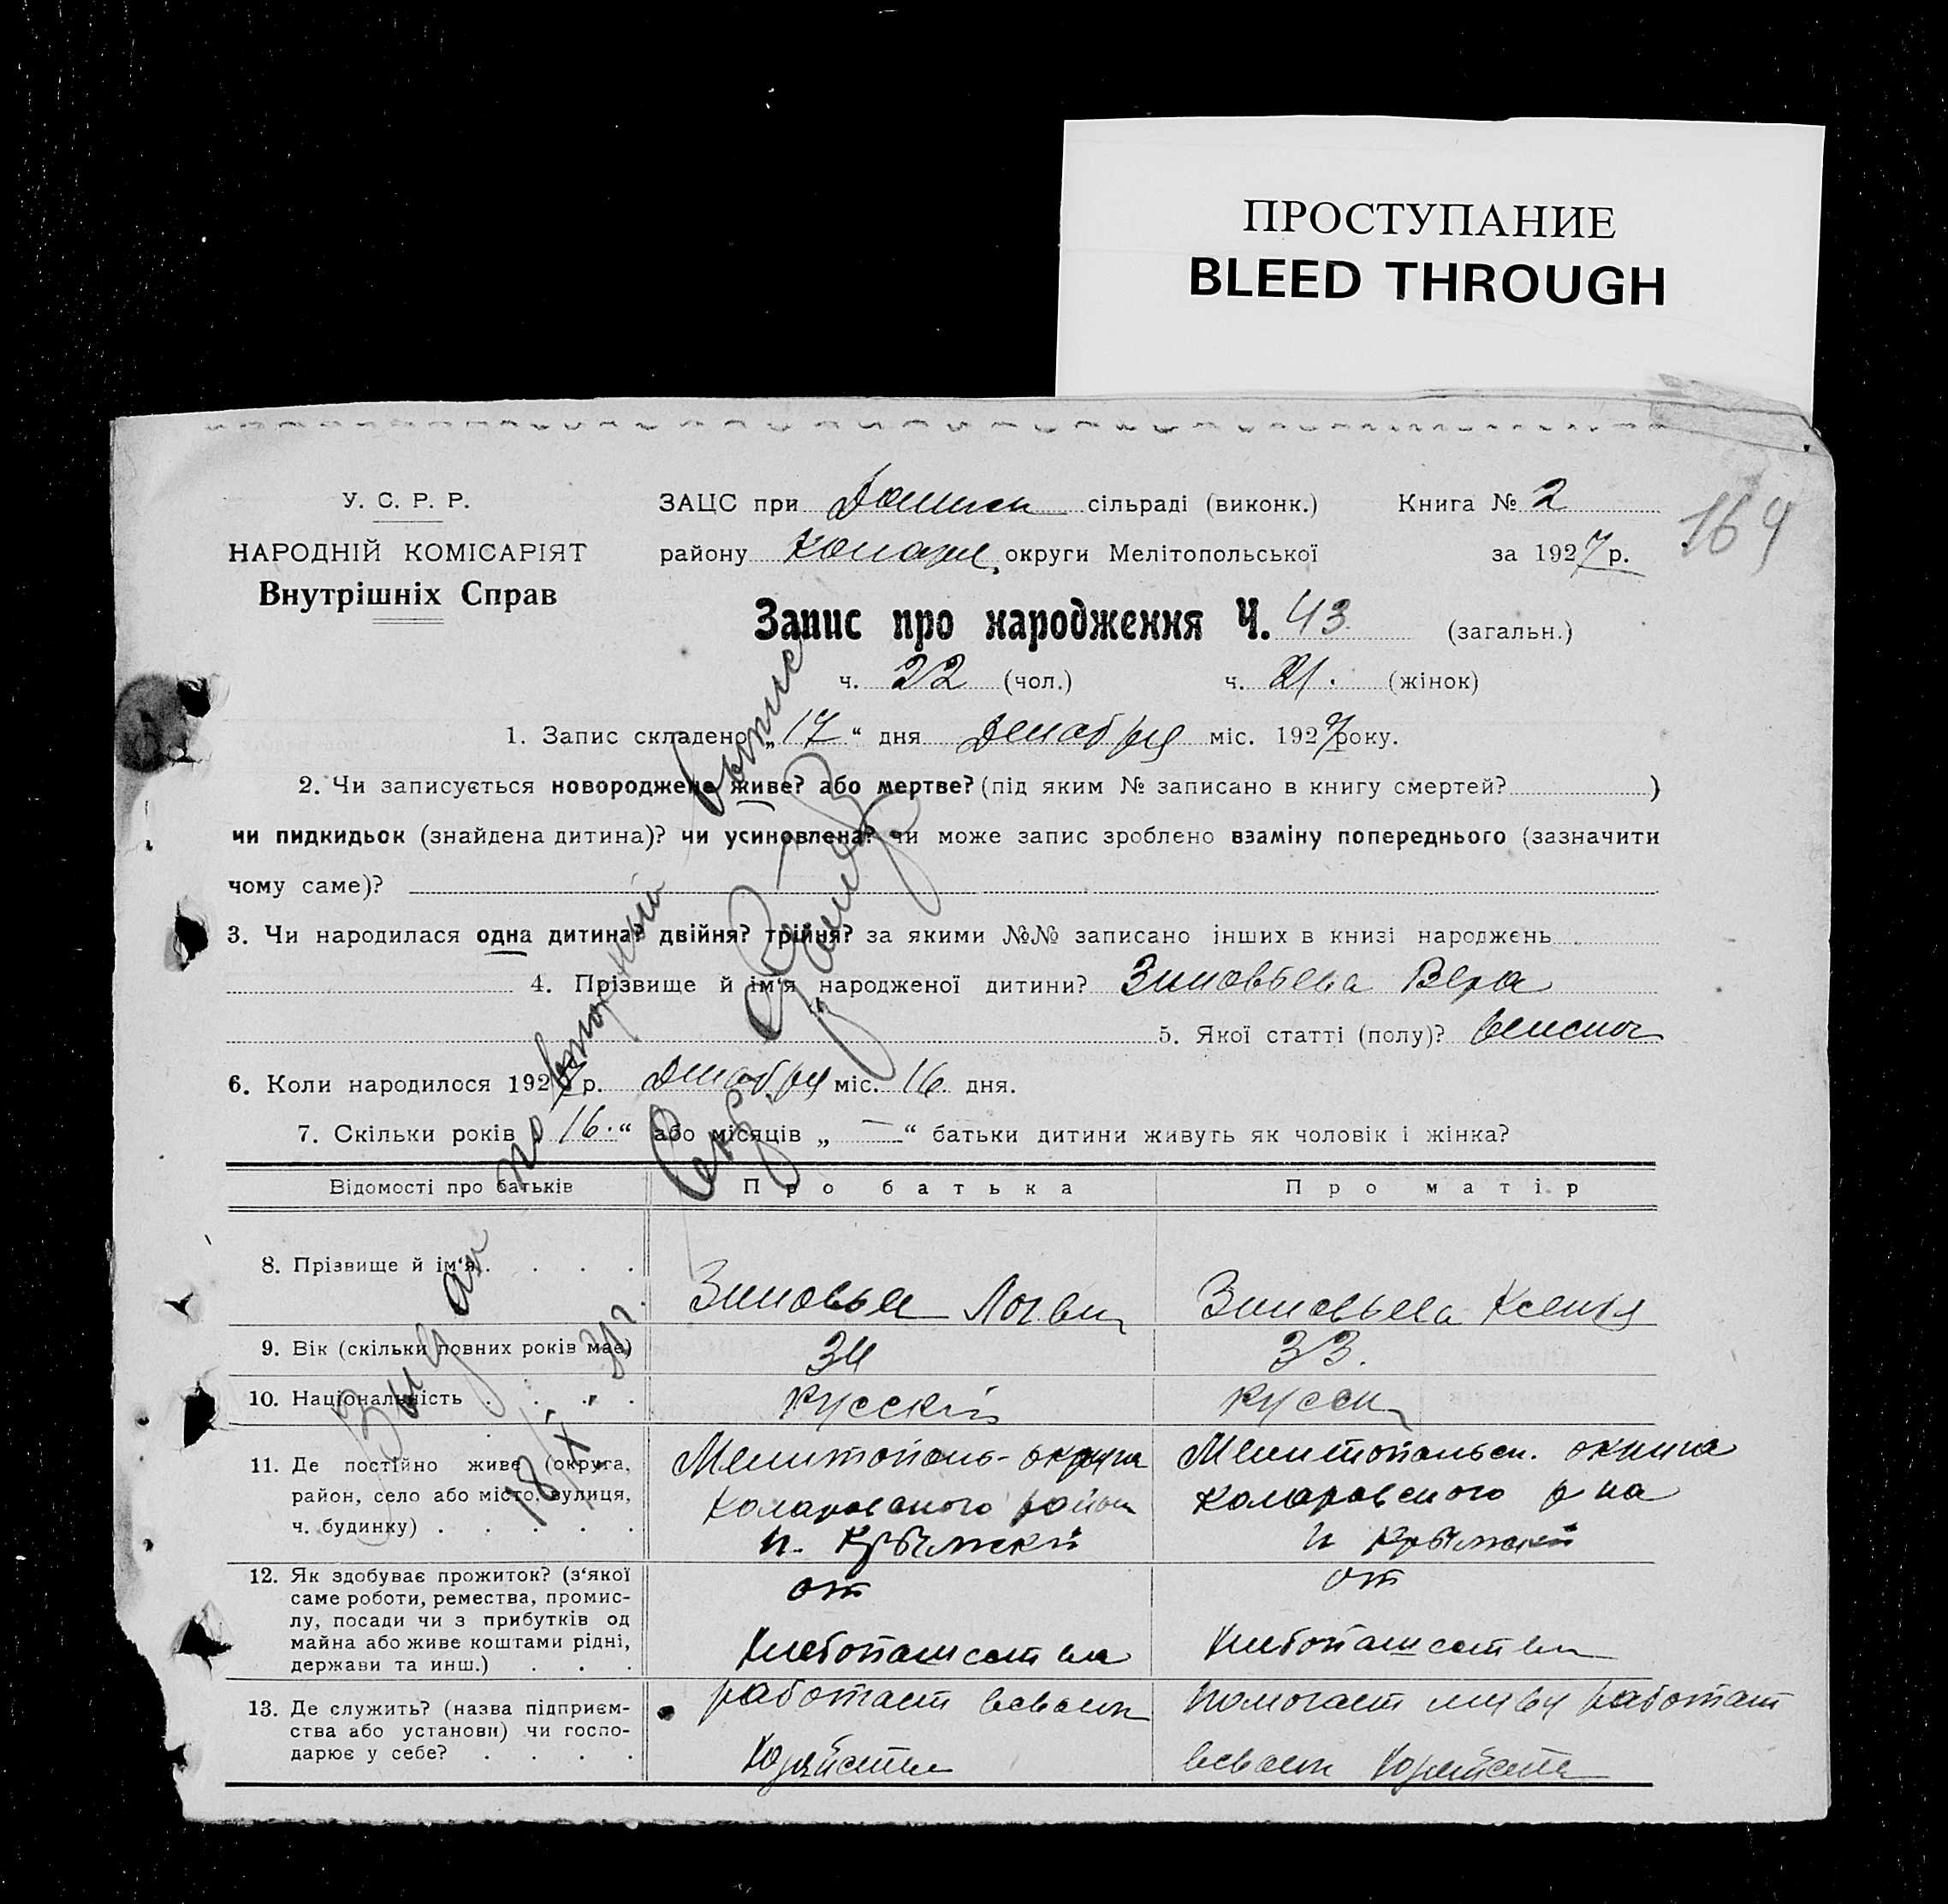 ПРОСТУПАНИЕ
BLEED THROUGH
У. С. Р. Р.
НАРОДНІЙ КОМІСАРІЯТ
Внутрішніх Справ
ЗАЦС при сільраді (виконк.) Книга № 2
району Комаре, округи Мелітопольської за 1927 р.
164
Запис про народження Ч. 43 (загальн.)
ч. 22 (чол.) ч. 21. (жінок)
1. Запис складено „17“ дня Декабря міс. 1927 року.
2. Чи записується новороджене живе? або мертве? (під яким № записано в книгу смертей? )
чи пидкидьок (знайдена дитина)? чи усиновлена? чи може запис зроблено взаміну попереднього (зазначити
чому саме)?
3. Чи народилася одна дитина? двійня? трійня? за якими №№ записано інших в книзі народжень
4. Прізвище й ім'я народженої дитини? Зиновьева Вера
5. Якої статті (полу)? женског
6. Коли народилося 1927 р. Декабря міс. 16 дня.
7. Скільки років „16.“ або місяців „—“ батьки дитини живуть як чоловік і жінка?
Відомості про батьків Про батька Про матір
8. Прізвище й ім'я . . . . Зиновьев Логвин Зиновьева Ксения
9. Вік (скільки повних років має) 34 33.
10. Національність . . . . Русский Русск
11. Де постійно живе (округа, район, село або місто, вулиця, ч. будинку) . . . . .
Мелитополь- округа
Коларовского район
п. Крымский
Мелитопольск. округа
Коларовского р на
п Крымский
12. Як здобуває прожиток? (з'якої саме роботи, ремества, промислу, посади чи з прибутків од майна або живе коштами рідні, держави та инш.) . . .
от
хлебопашества
от
хлебопашества
13. Де служить? (назва підприємства або установи) чи господарює у себе? . . . .
работает всвоем
хозяйстве
помогает мужу работат
всвоем хозяйстве
Выдан повторный выпис
18/IX